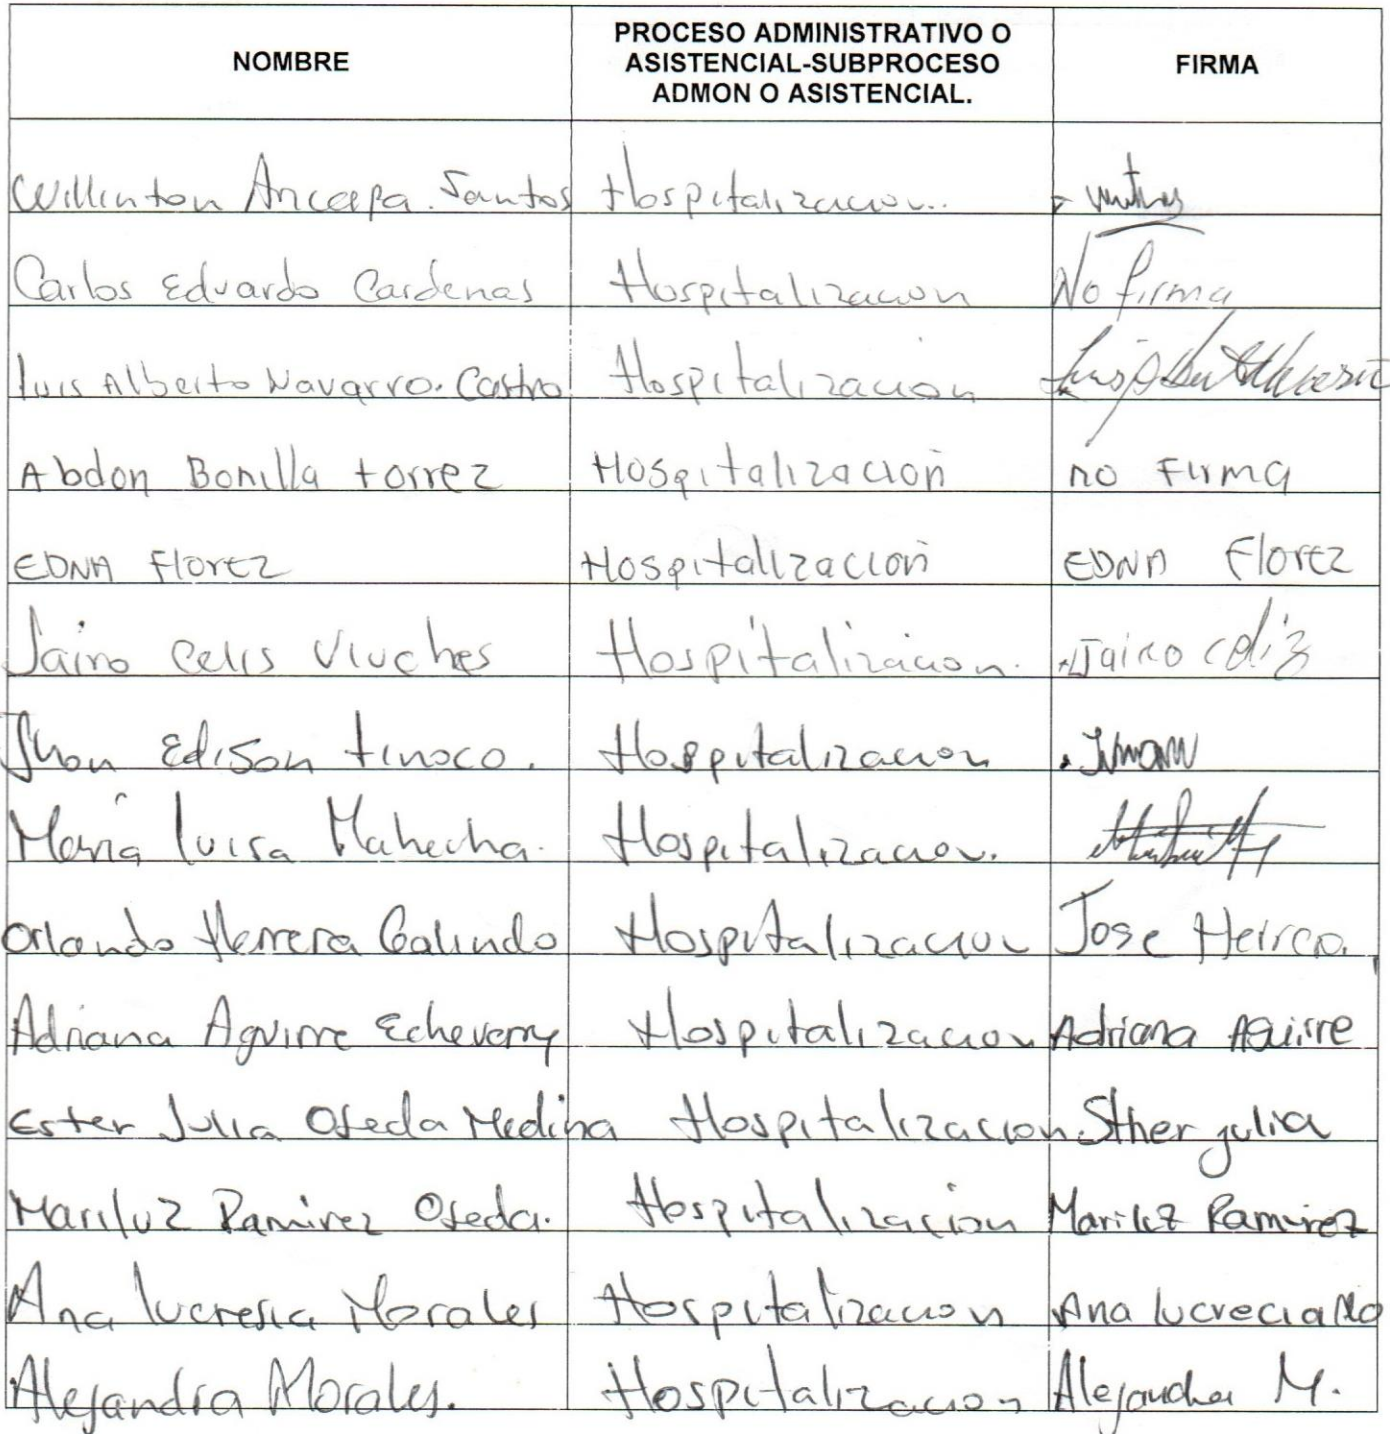 NOMBRE
PROCESO ADMINISTRATIVO O
ASISTENCIAL-SUBPROCESO
ADMON O ASISTENCIAL.
FIRMA
Willinton Santos Hospitalizacion..
Carlos Eduardo Cardenas Hospitalizacion No firma
Luis Alberto Navarro. Castro Hospitalización
Abdon Bonilla torrez Hospitalización no Firma
EDNA Florez Hospitalización EDNA Florez
Jairo Celis Hospitalizacion. Jairo celiz
Jhon Edison tinoco. Hospitalizacion
María luisa Mahecha. Hospitalizacion.
Orlando Herrera Galindo Hospitalizacion Jose Herrera
Adriana Aguirre Echeverry Hospitalizacion Adriana Aguirre
Ester Julia Ojeda Medina Hospitalizacion Sther julia
Mariluz Ramirez Ojeda. Hospitalizacion Mariluz Ramirez
Ana lucresia Morales Hospitalizacion Ana lucrecia Mo
Alejandra Morales. Hospitalizacion Alejandra M.